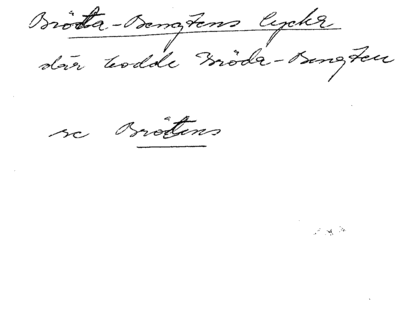 Brötta-Bengtens lycka
där bodde Bröda-Bengten
se Brötens